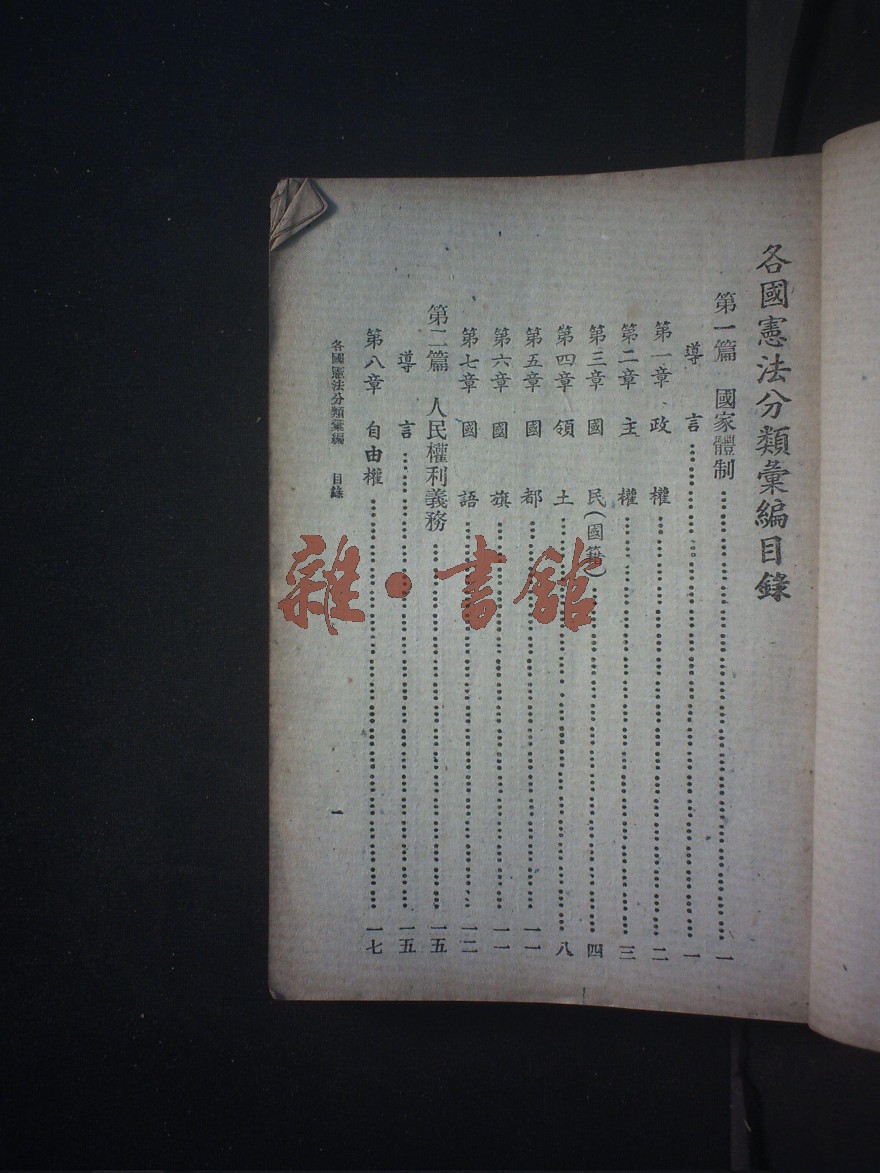 各國憲法分類彙編目錄
第一篇 國家體制……一
導言……一
第一章 政權……二
第二章 主權……三
第三章 國民(國籍)……四
第四章 領土……八
第五章 國都……一一
第六章 國旗……一一
第七章 國語……一二
第二篇 人民權利義務……一五
導言……一五
第八章 自由權……一七
各國憲法分類彙編 目錄 一
雜·書館